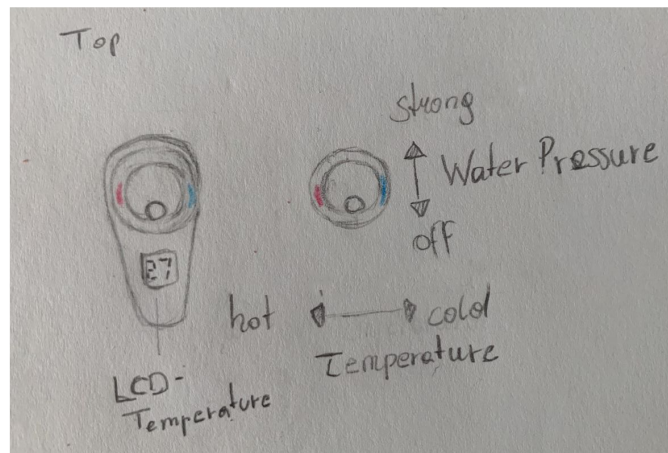 Top
strong
Water Pressure
off
27
hot
cold
Temperature
LCD-
Temperature